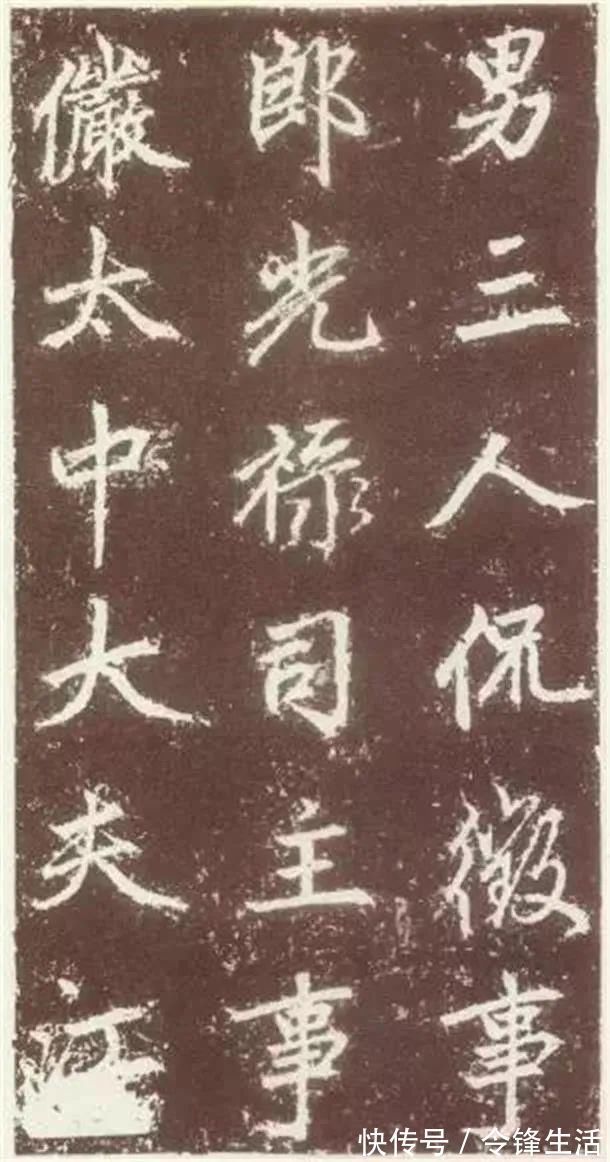 男三人侃徵事
郎光禄司主事
儼太中大夫江
快传号 / 令锋生活